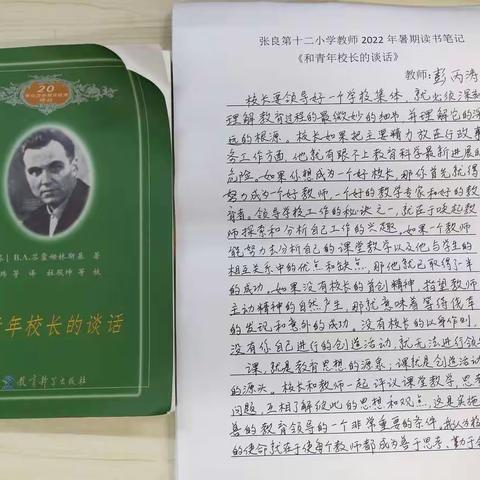 20
B.A.苏霍姆林斯基 著
等 译 赵玮 等 校
青年校长的谈话
教育科学出版社
张良第十二小学教师 2022 年暑期读书笔记
《和青年校长的谈话》
教师:彭丙涛
校长要领导好一个学校集体,就必须深刻
理解教育过程的最微妙的细节,并理解它的深
远的根源。校长如果把主要精力放在行政事
务工作方面,他就有跟不上教育科学最新进展的
危险。如果你想成为一个好校长,那你首先就得
努力成为一个好教师,一个好的教学专家和好的教
育者。领导学校工作的秘诀之一,就在于唤起教
师探索和分析自己工作的兴趣。如果一个教师
能努力去分析自己的课堂教学以及他与学生的
相互关系中的优点和缺点,那他就已取得了一半
的成功。如果没有校长的首创精神,指望教师
主动精神的自然产生,那就意味着等待侥幸
的发现和意外的成功。没有校长的以身作则,
没有你自己进行的创造活动,就无法进行领导
课,就是教育思想的源泉;课就是创造活动
的源头。校长和教师一起评议课堂教学,思考
问题,互相了解彼此的思想和观点,这是实施
善的教育领导的一个非常重要的条件。我认为校
的使命就在于使每个教师都成为善于思考、勤于